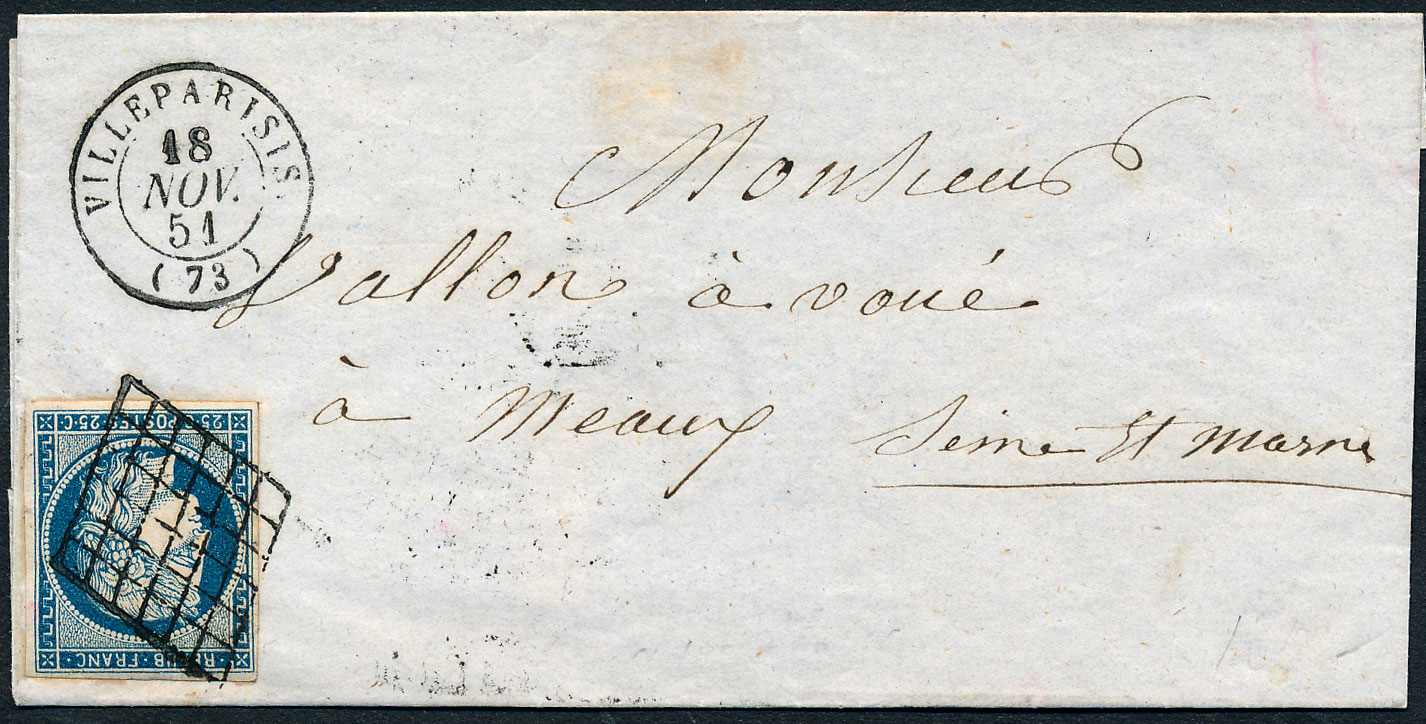 VILLEPARISIS
18
NOV.
51
(73)
Monsieur
Vallon à voué
à Meaux Seine Et Marne
25·C POSTES 25·C
REPUB·FRANC